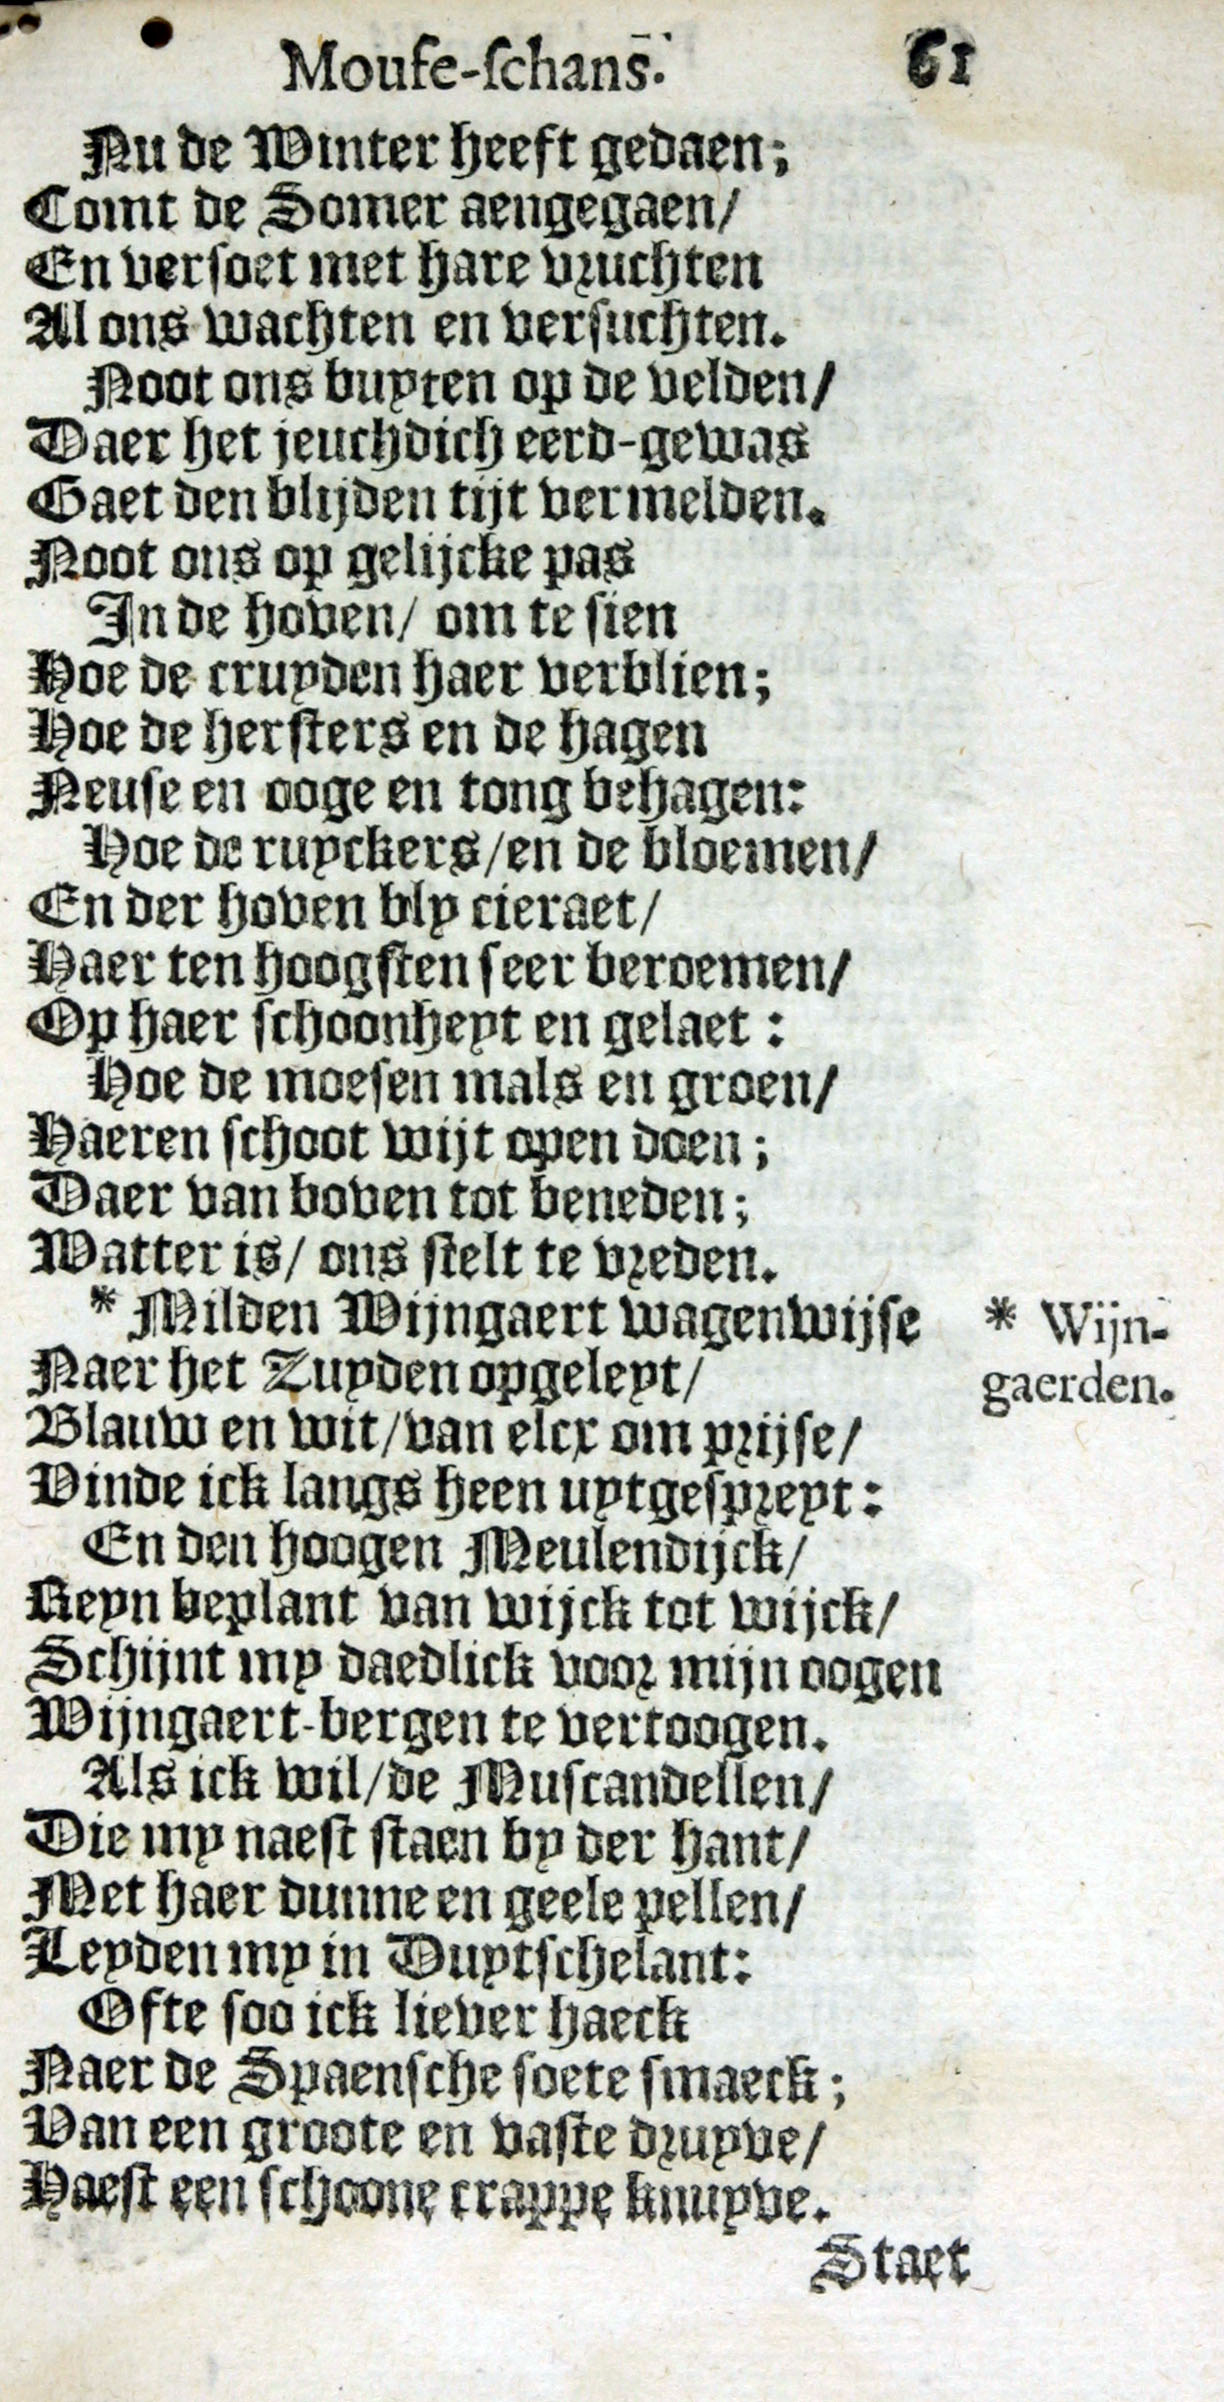 Mouſe-ſchans. 61
Nu de Winter heeft gedaen;
Comt de Somer aengegaen/
En verſoet met hare vruchten
Al ons wachten en verſuchten.
Noot ons buyten op de velden/
Daer het jeuchdich eerd-gewas
Gaet den blijden tijt vermelden.
Noot ons op gelijcke pas
In de hoven/ om te ſien
Hoe de cruyden haer verblien;
Hoe de herſters en de hagen
Neuſe en ooge en tong behagen:
Hoe de ruyckers/en de bloemen/
En der hoven bly cieraet/
Haer ten hoogſten ſeer beroemen/
Op haer ſchoonheyt en gelaet :
Hoe de moeſen mals en groen/
Haeren ſchoot wijt open doen;
Daer van boven tot beneden;
Watter is/ ons ſtelt te vreden.
* Milden Wijngaert wagenwijſe
* Wijn-
gaerden.
Naer het Zuyden opgeleyt/
Blauw en wit/van elcx om prijſe/
Vinde ick langs heen uytgeſpreyt:
En den hoogen Meulendijck/
Reyn beplant van wijck tot wijck/
Schijnt my daedlick voor mijn oogen
Wijngaert-bergen te vertoogen.
Als ick wil/de Muſcandellen/
Die my naeſt ſtaen by der hant/
Met haer dunne en geele pellen/
Leyden my in Duytſchelant:
Ofte ſoo ick liever haeck
Naer de Spaenſche ſoete ſmaeck;
Van een groote en vaſte druyve/
Haeſt een ſchoone crappe knuyve.
Staet